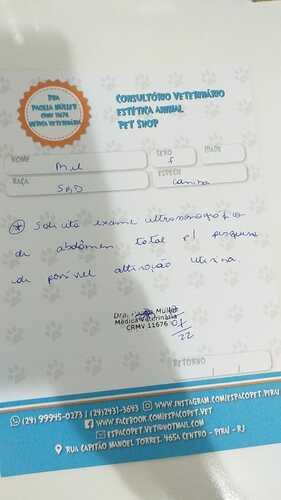 DRA
PAOLLA MÜLLER
CRMV 11676
MÉDICA VETERINÁRIA
CONSULTÓRIO VETERINÁRIO
ESTÉTICA ANIMAL
PET SHOP
NOME Mel SEXO f IDADE
RAÇA SRD ESPÉCIE canina
* Solicito exame ultrassonográfico
de abdômen total p/ pesquisa
de possível alteração uterina.
Dra. Müller
Médica Veterinária
CRMV 11676
07
22
RETORNO
(24) 99945-0273 | (24)2431-3643 WWW.INSTAGRAM.COM/ESPACOPET.PIRAI
WWW.FACEBOOK.COM/ESPACOPET.VET
ESPACOPET.VET@HOTMAIL.COM
RUA CAPITÃO MANOEL TORRES, 465A CENTRO - PIRAÍ - RJ